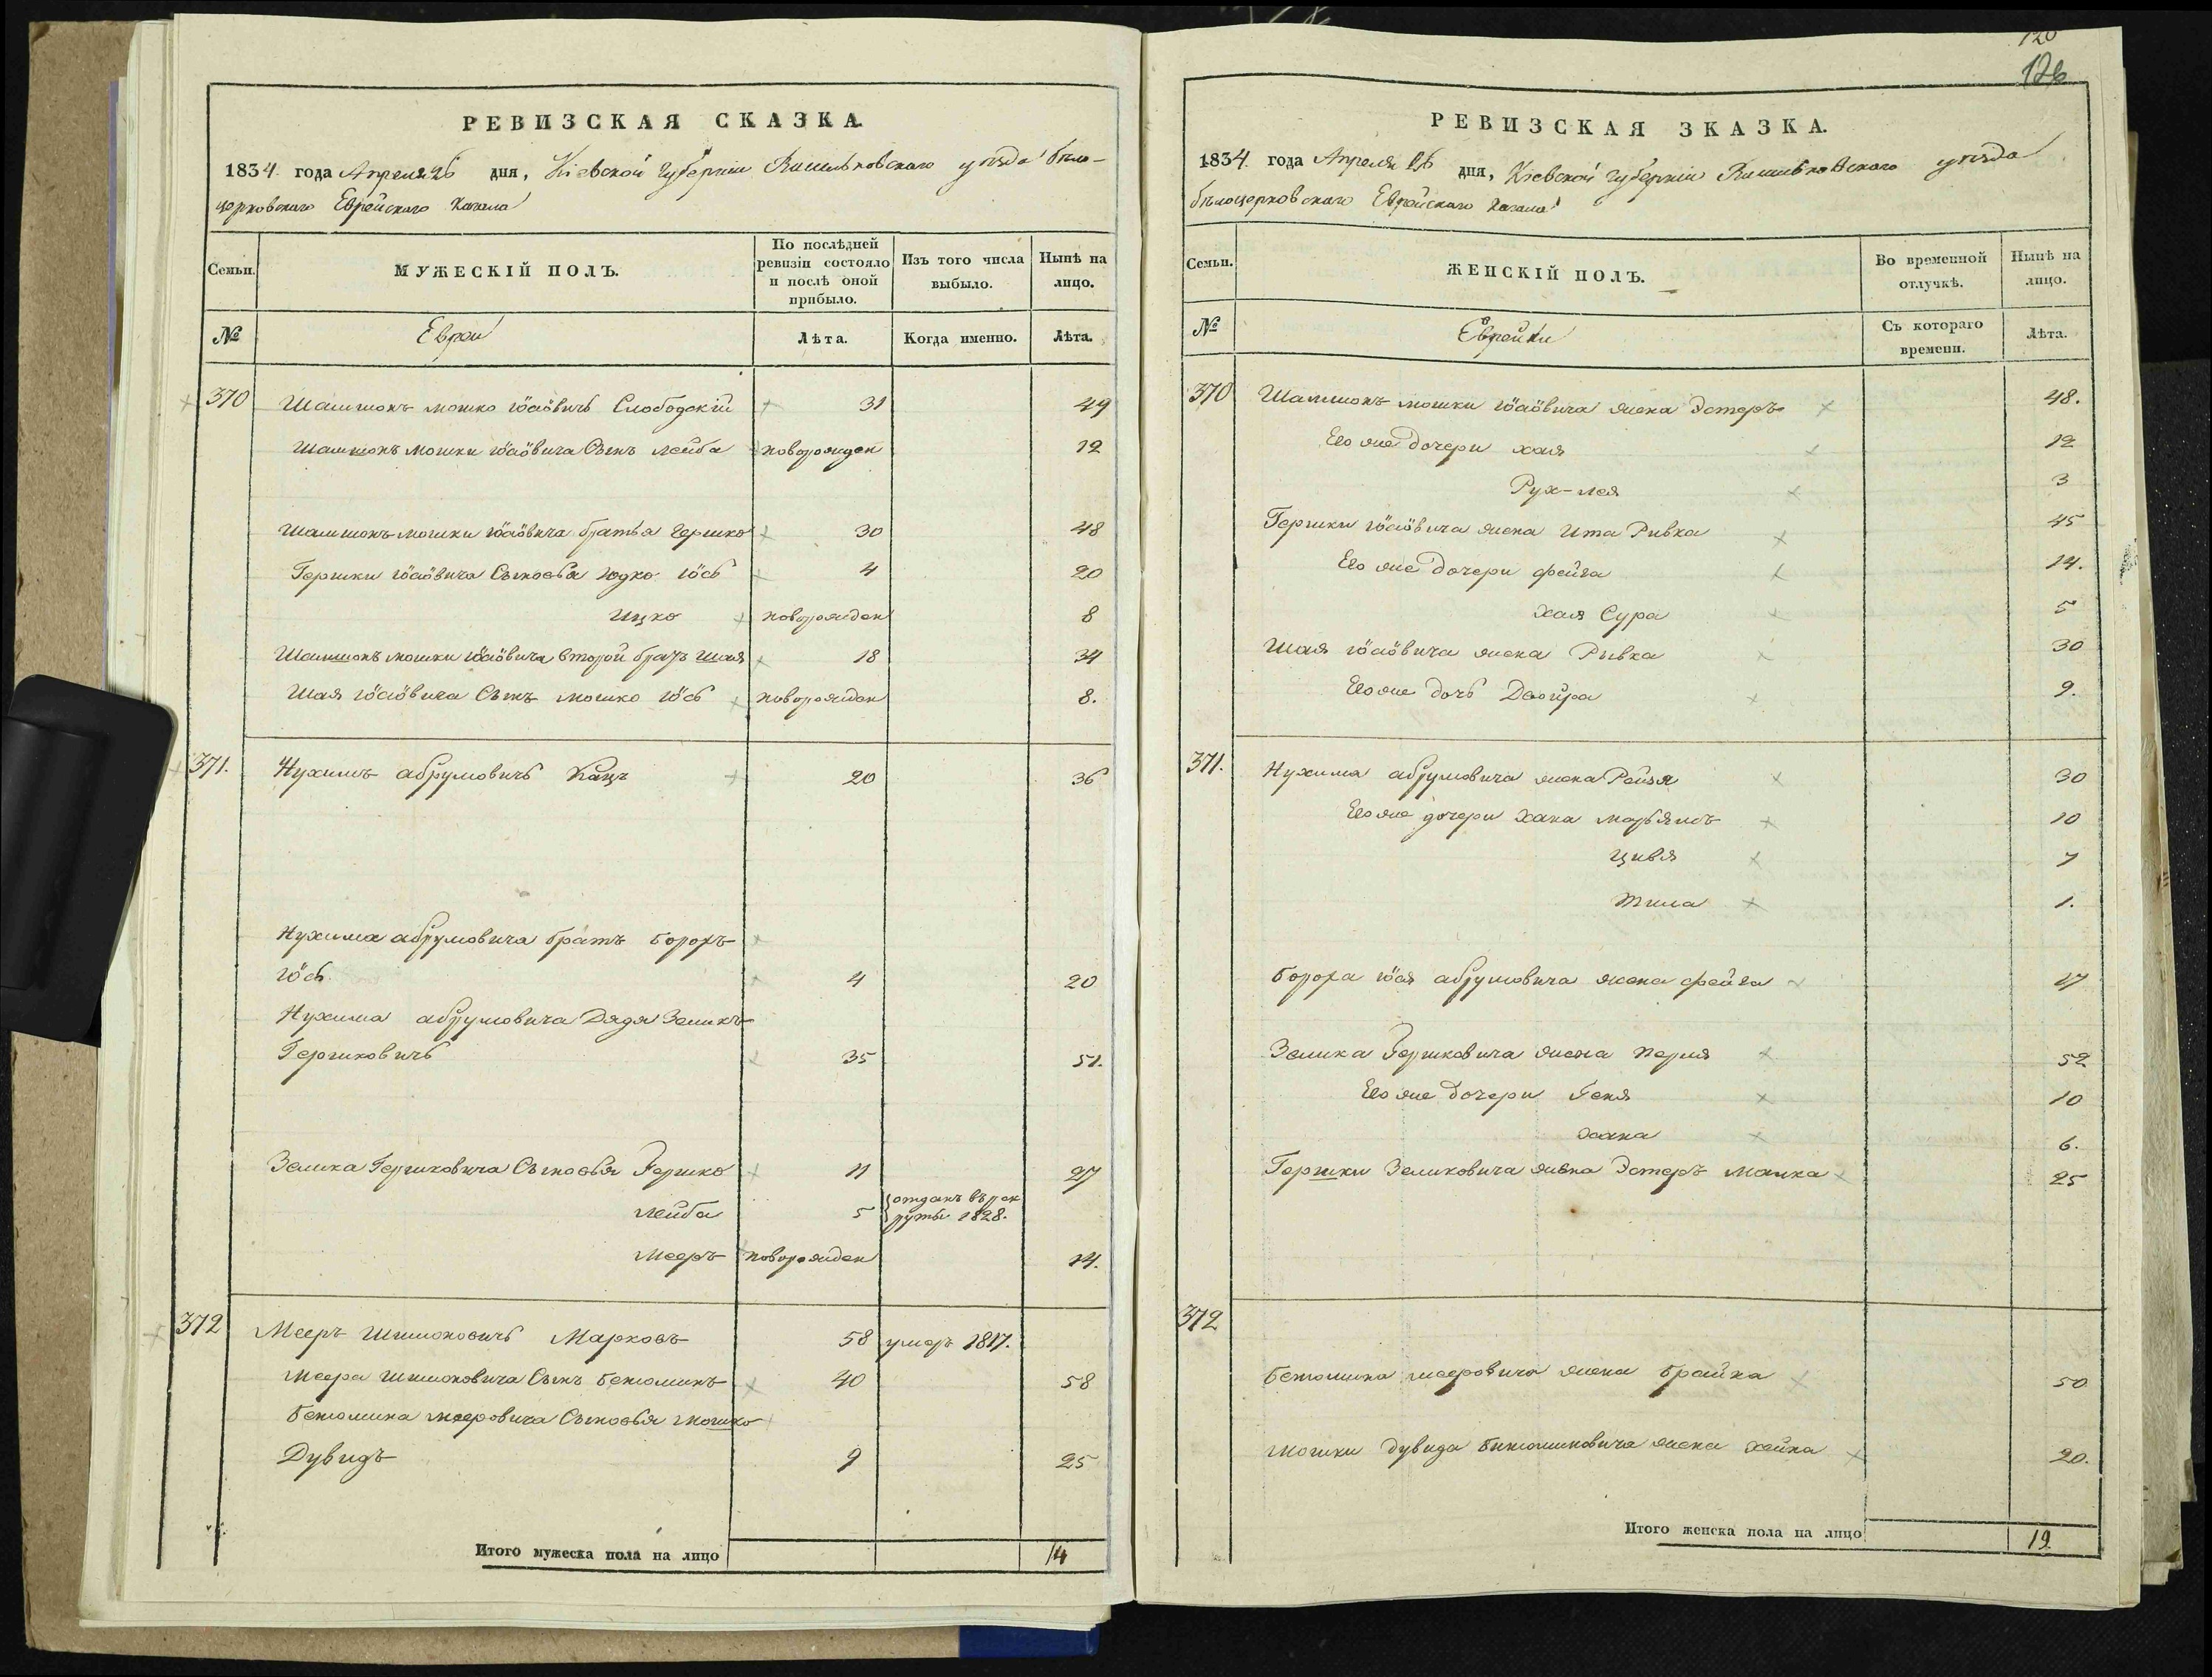 РЕВИЗСКАЯ СКАЗКА.
1834. года Апреля 26 дня, Кіевской Губерніи Васильковскаго уѣзда бѣло-
церковскаго Еврейскаго Кагала
Семьи. МУЖЕСКІЙ ПОЛЪ. По послѣдней ревизіи состояло и послѣ оной прибыло. Изъ того числа выбыло. Нынѣ на лицо.
№ Евреи Лѣта. Когда именно. Лѣта.
370 Шамшонъ мошко іосіовичь Слободскій 31 49
Шамшонъ мошки іосіовича Сынъ лейба новорожден 12
Шамшонъ мошки іосіовича братья гершко 30 48
Гершки іосіовича Сыновья юдко іось 4 20
ицко новорожден 8
Шамшонъ мошки іосіовича второй братъ шая 18 34
Шая іосіовича Сынъ мошко іось новорожден 8.
371. Нухимъ абрумовичь Кацъ 20 36
Нухима абрумовича братъ борохъ
іось 4 20
Нухима абрумовича Дядя Зеликъ
Гершковичь 35 51.
Зелика Гершковича Сыновья Гершко 11 27
лейба 5 отданъ въ рек
руты 1828.
мееръ новорожден 14.
372 Мееръ Шимоновичь Марковъ 58 умеръ 1817.
меера шимоновича Сынъ бенюминъ 40 58
бенюмина мееровича Сыновья мошко
Дувидъ 9 25
Итого мужеска пола на лицо 14
120
126
РЕВИЗСКАЯ ЗКАЗКА.
1834. года Апреля 26 дня, Кіевской Губерніи Васильковскаго уѣзда
бѣлоцерковскаго Еврейскаго Кагала
Семьи. ЖЕНСКІЙ ПОЛЪ. Во временной отлучкѣ. Нынѣ на лицо.
№ Еврейки Съ котораго времени. Лѣта.
370 Шамшонъ мошки іосіовича жена Эстеръ 48.
Его же дочери хая 12
Рух-лея 3
Гершки іосіовича жена Ита Ривка 45
Его же Дочери фейга 14.
хая Сура 5
Шая іосіовича жена Рывка 30
Его же дочь Двойра 9.
371. Нухима абрумовича жена Рейзя 30
Его же дочери хана марьямъ 10
цивя 7
тила 1.
бороха іося абрумовича жена фейга 17
Зелика Гершковича жена перля 52
Его же дочери Геня 10
хана 6.
Гершки Зеликовича жена Эстеръ малка 25
372
бенюмина мееровича жена брайна 50
мошки дувида бинюминовича жена хейна 20.
Итого женска пола на лицо 19.